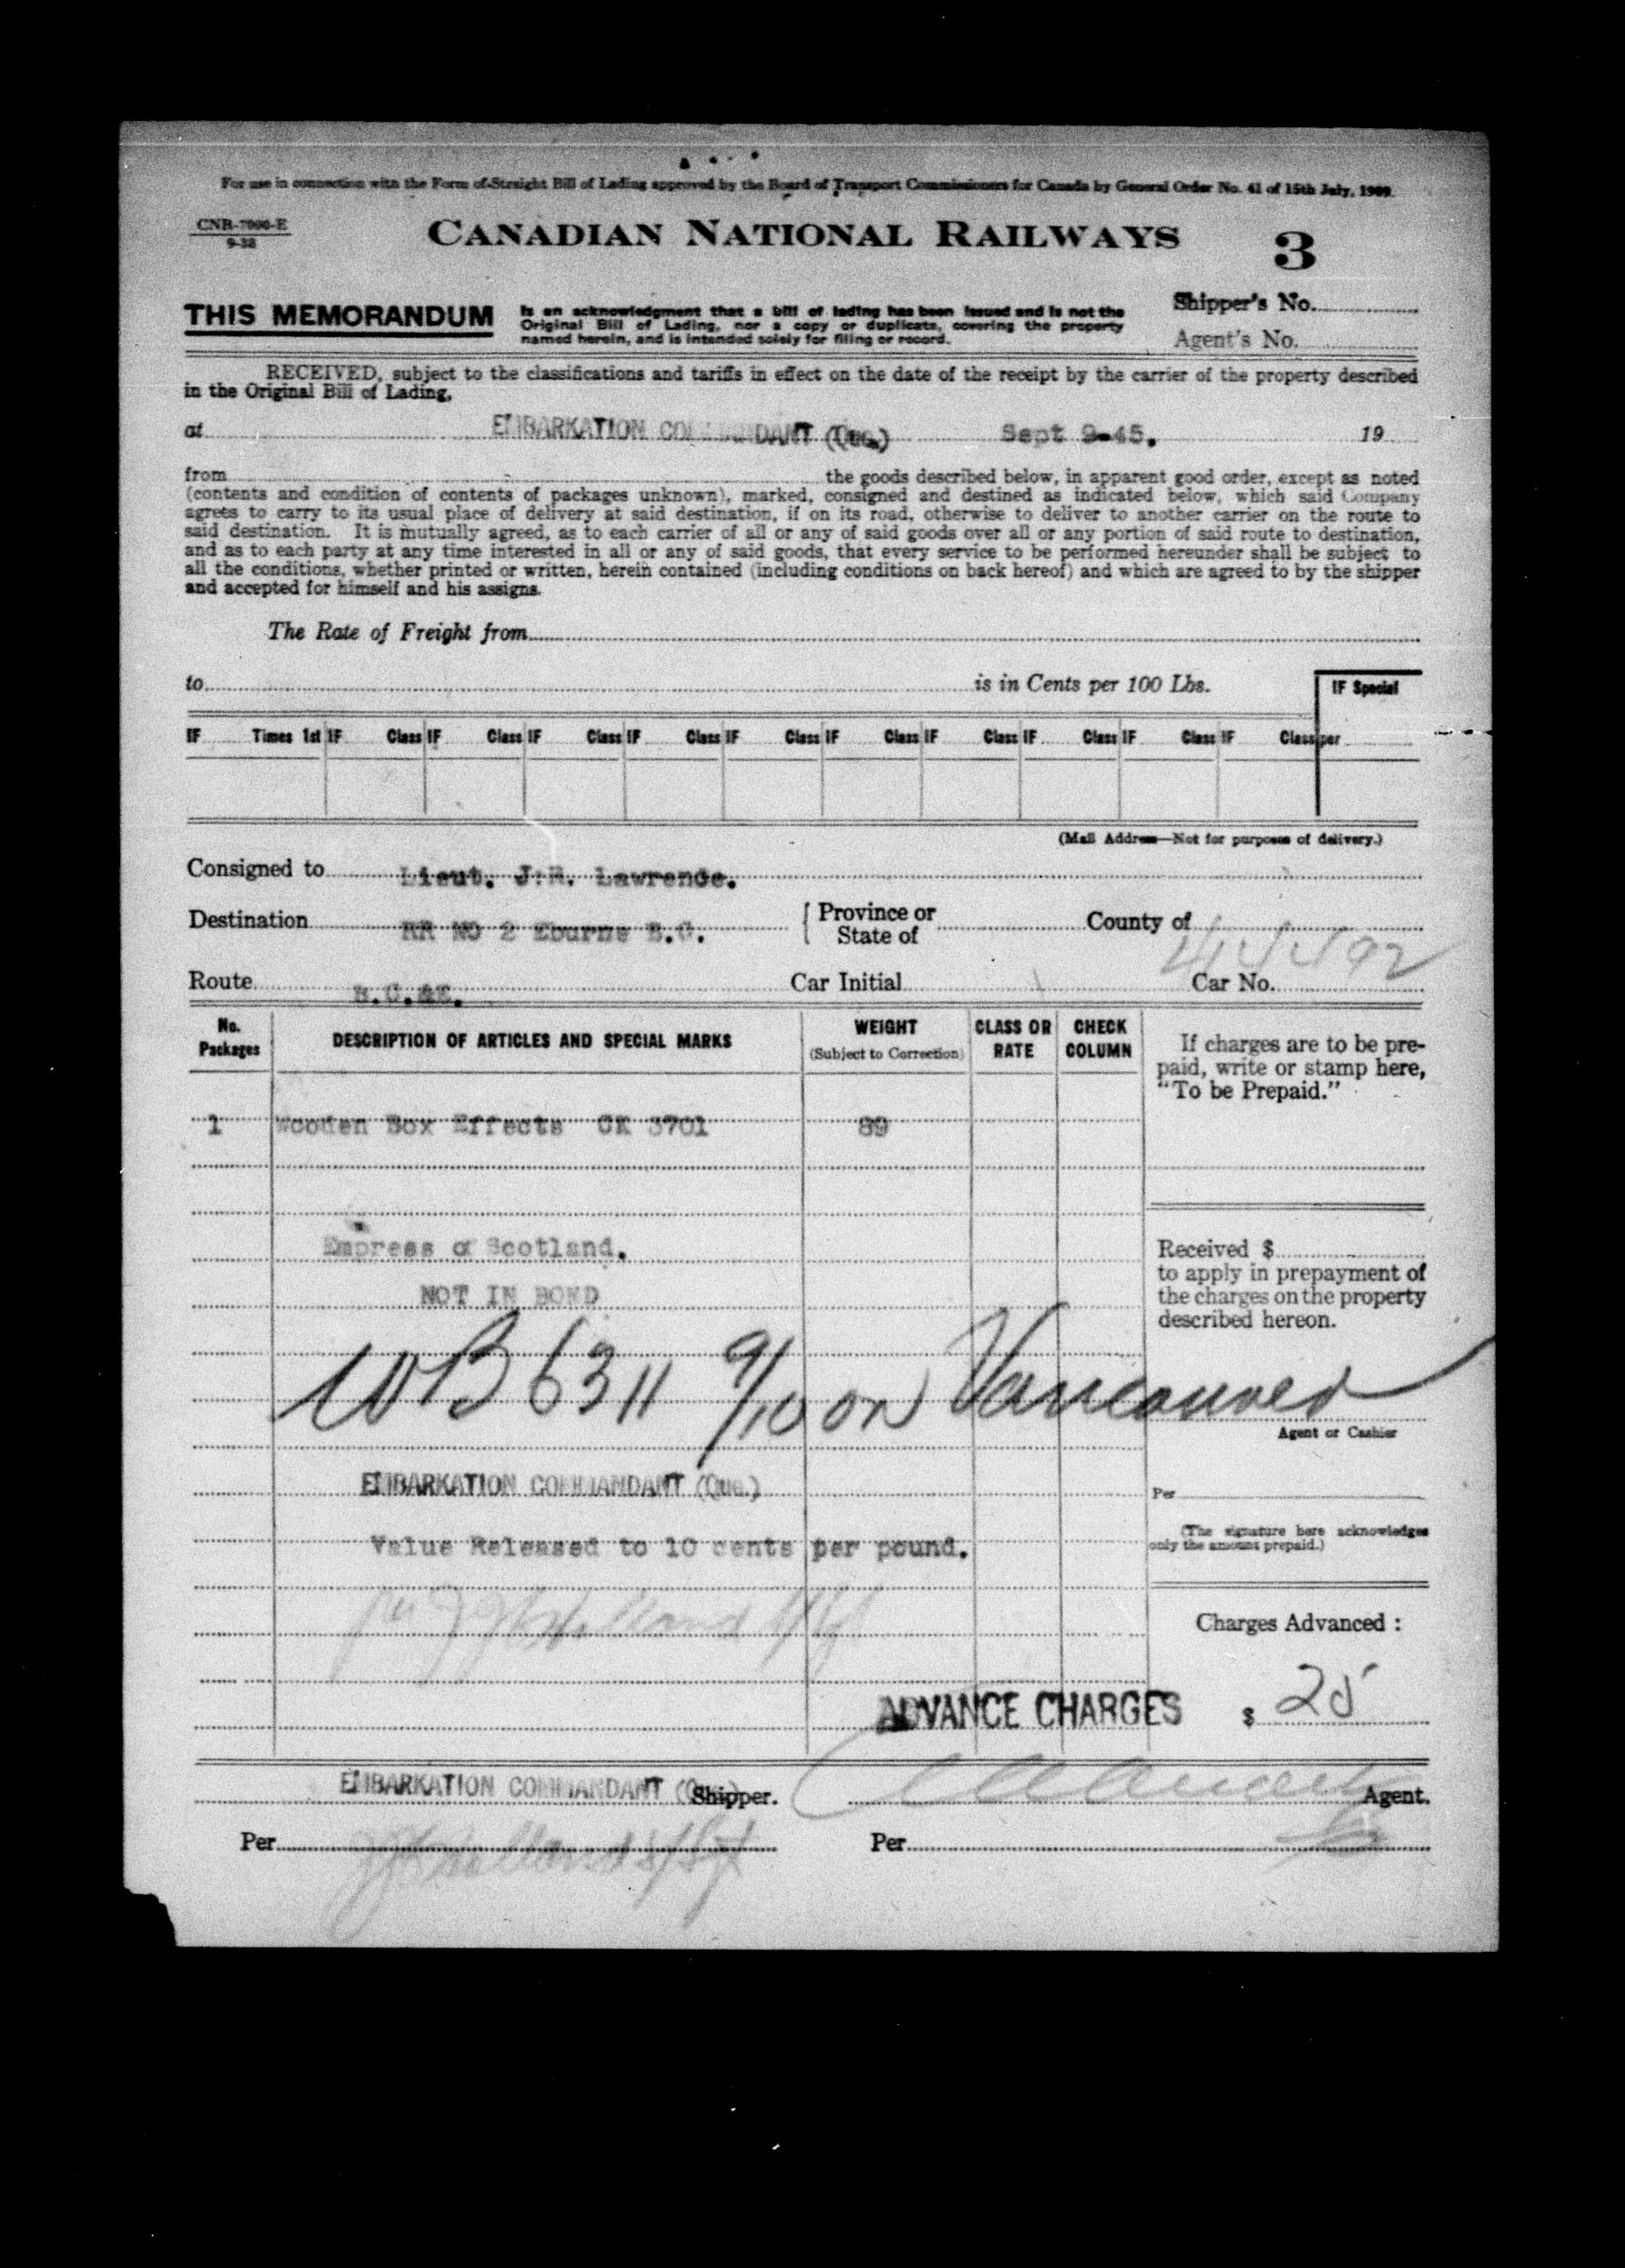 For use in connection with the Form of Straight Bill of Lading approved by the Board of Transport Commissioners for Canada by General Order No. 41 of 15th July, 1909.
CNR-7000-E
9-38
CANADIAN NATIONAL RAILWAYS
3
THIS MEMORANDUM
is an acknowledgment that a bill of lading has been issued and is not the
Original Bill of Lading, nor a copy or duplicate, covering the property
named herein, and is intended solely for filing or record.
Shipper's No.
Agent's No.
RECEIVED, subject to the classifications and tariffs in effect on the date of the receipt by the carrier of the property described
in the Original Bill of Lading,
at EMBARKATION COMMANDANT (Que.) Sept 9-45. 19
from the goods described below, in apparent good order, except as noted
(contents and condition of contents of packages unknown), marked, consigned and destined as indicated below, which said Company
agrees to carry to its usual place of delivery at said destination, if on its road, otherwise to deliver to another carrier on the route to
said destination. It is mutually agreed, as to each carrier of all or any of said goods over all or any portion of said route to destination,
and as to each party at any time interested in all or any of said goods, that every service to be performed hereunder shall be subject to
all the conditions, whether printed or written, herein contained (including conditions on back hereof) and which are agreed to by the shipper
and accepted for himself and his assigns.
The Rate of Freight from
to is in Cents per 100 Lbs.
IF Special
IF Times 1st IF Class IF Class IF Class IF Class IF Class IF Class IF Class IF Class IF Class IF Class per
(Mail Address—Not for purposes of delivery.)
Consigned to Lieut. J.R. Lawrence.
Destination RR NO 2 Eburne B.C. Province or
State of
County of
Route Car Initial Car No.
No.
Packages
DESCRIPTION OF ARTICLES AND SPECIAL MARKS
WEIGHT
(Subject to Correction)
CLASS OR
RATE
CHECK
COLUMN
If charges are to be pre-
paid, write or stamp here,
"To be Prepaid."
1 Wooden Box Effects CK 3701 89
Empress of Scotland.
NOT IN BOND
Received $
to apply in prepayment of
the charges on the property
described hereon.
WB 6311 9/10 ON Vancouver
Agent or Cashier
EMBARKATION COMMANDANT (Que.)
Per
(The signature here acknowledges
only the amount prepaid.)
Value Released to 10 cents per pound.
Charges Advanced :
ADVANCE CHARGES $ 25
EMBARKATION COMMANDANT Shipper.
Agent.
Per
Per